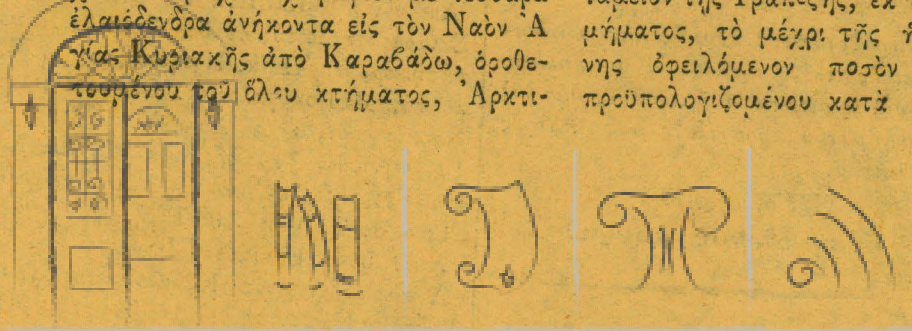 ἐλαιόδενδρα ἀνήκοντα εἰς τὸν Ναὸν Ἁ
γίας Κυριακῆς ἀπὸ Καραβάδω, ὁροθε-
τουμένου τοῦ ὅλου κτήματος, Ἀρκτι-
μήματος, τὸ μέχρι τῆς
νης ὀφειλόμενον ποσὸν
προϋπολογιζομένου κατὰ